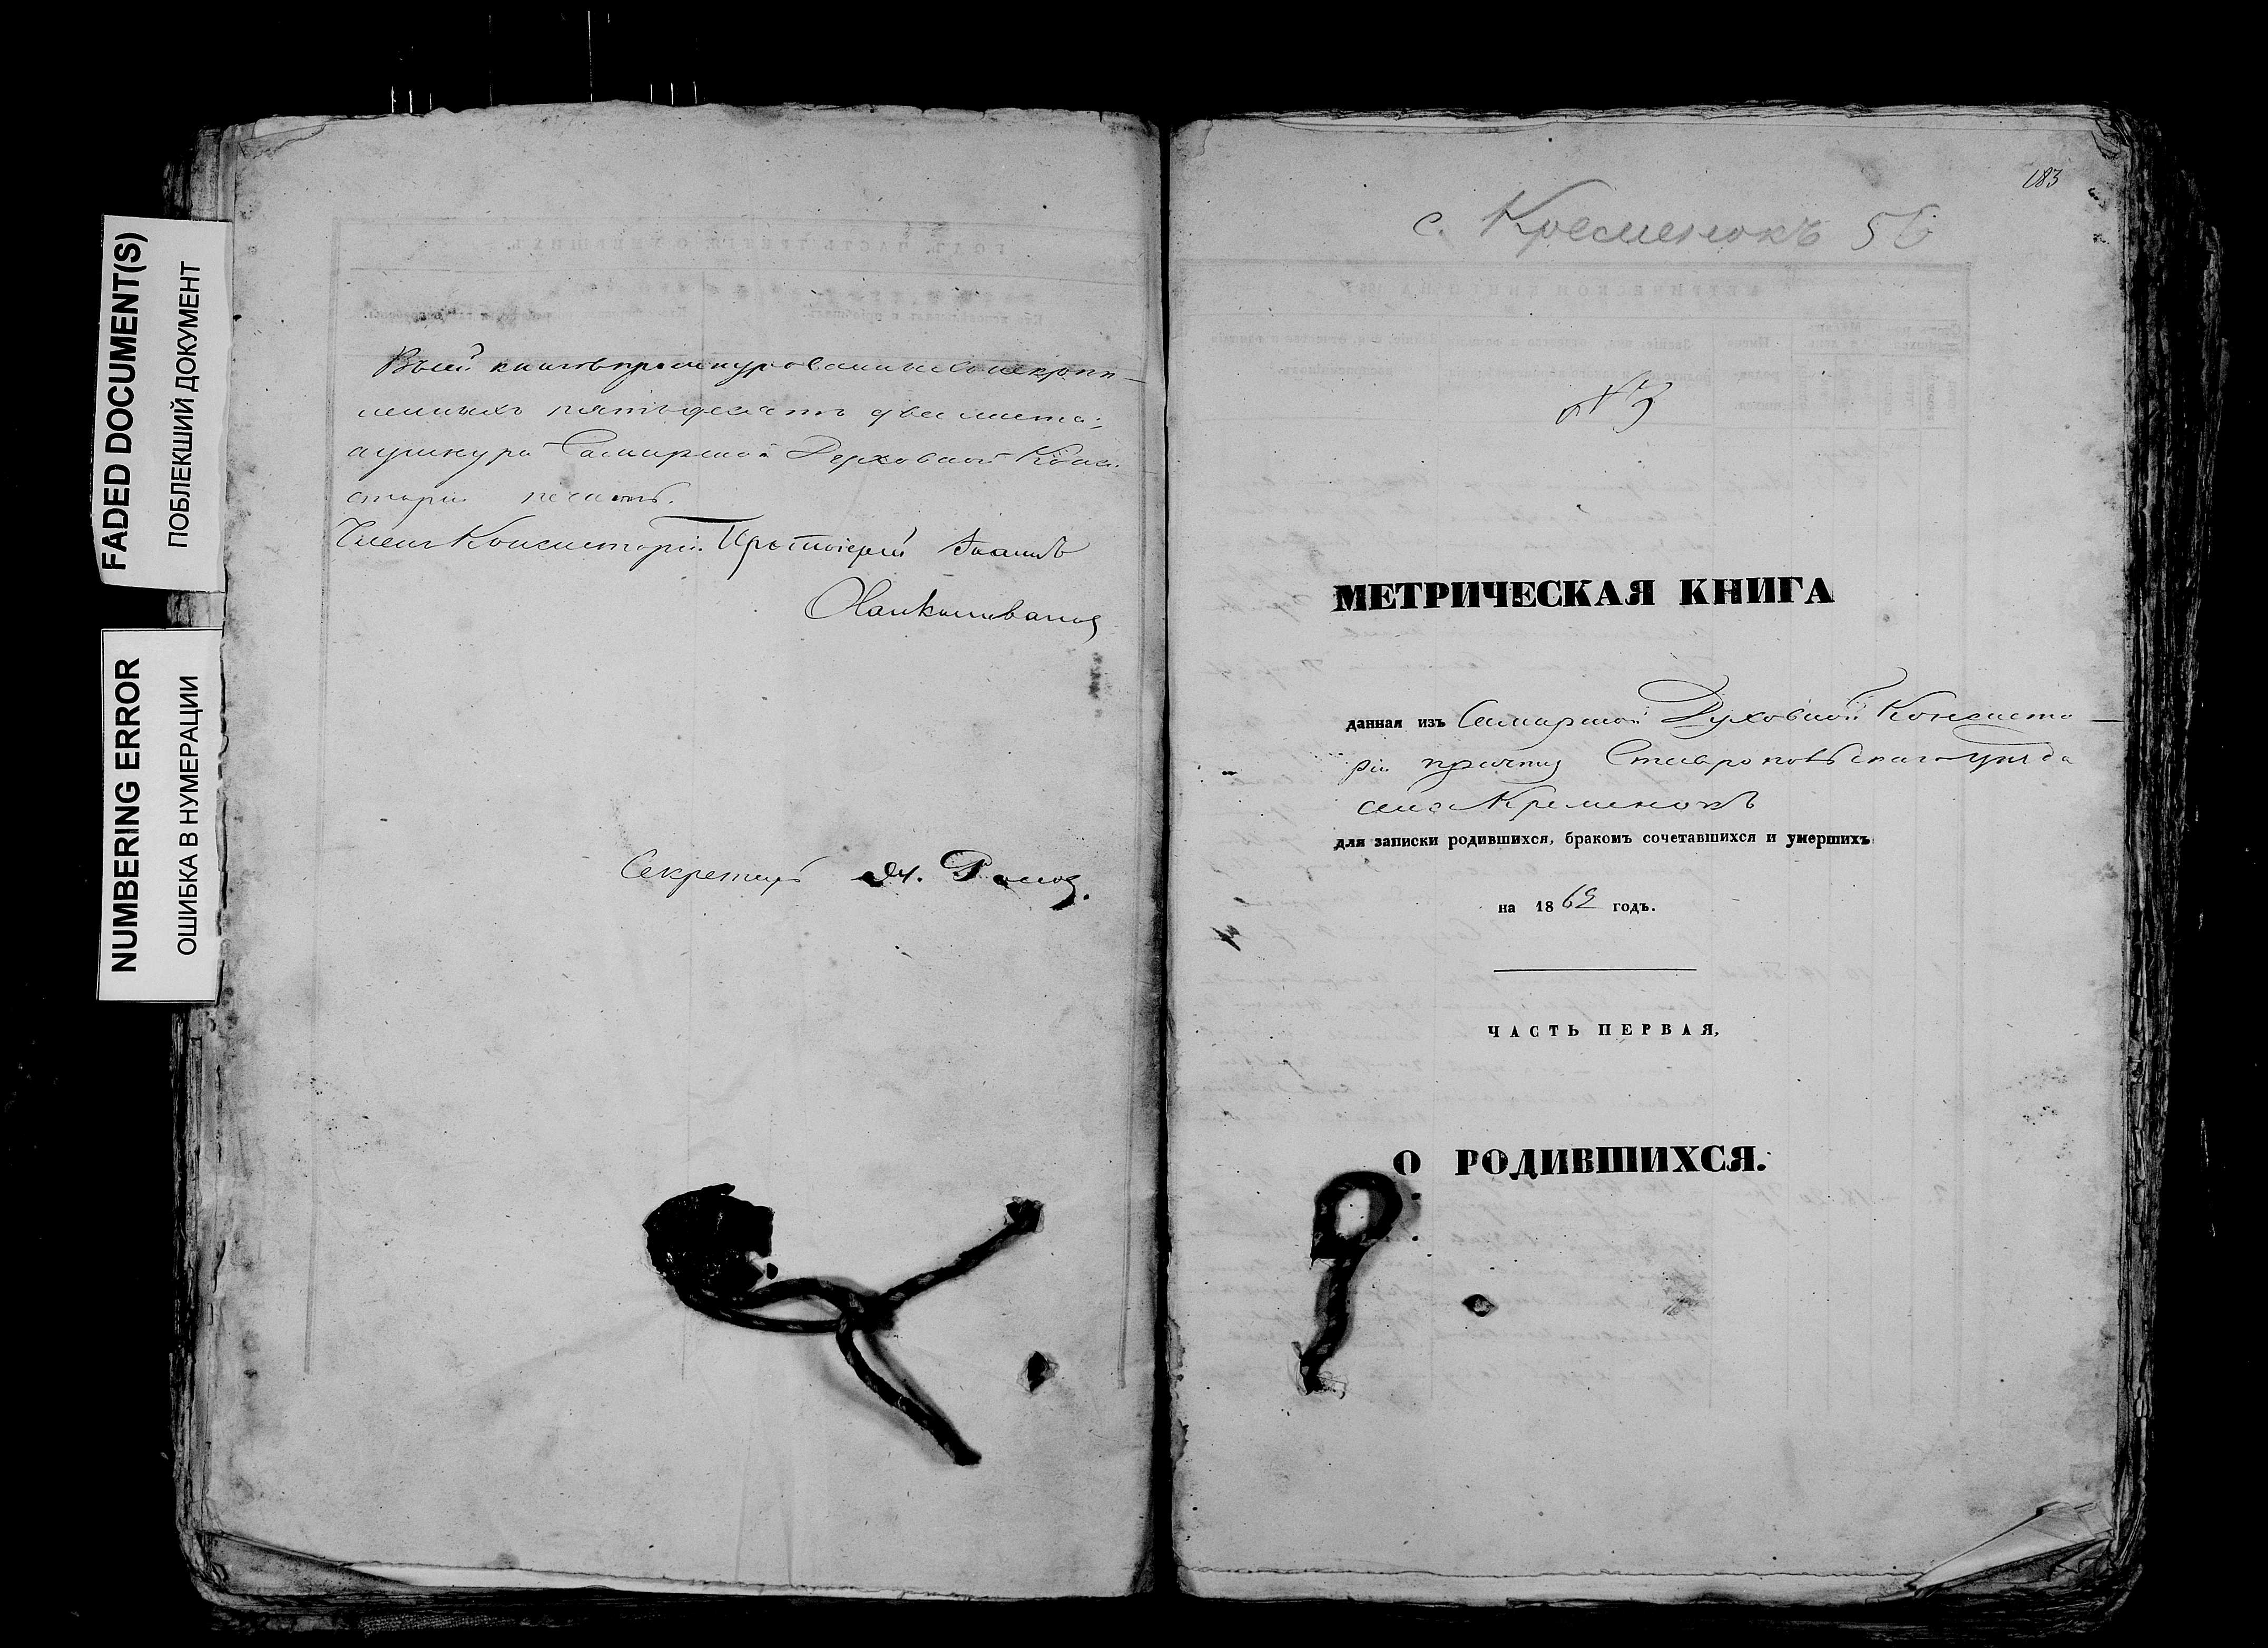 FADED DOCUMENT(S)
ПОБЛЕКШИЙ ДОКУМЕНТ
NUMBERING ERROR
ОШИБКА В НУМЕРАЦИИ
Въ сей книге прошнурованныхъ и скреп-
ленныхъ пятьдесятъ два листа;
а у шнура Самарской Духовной Конси-
сторіи печать.
Членъ Консисторіи Протоіерей Іоаннъ
Секретарь
183
с. Кременокъ 56
№ 3
МЕТРИЧЕСКАЯ КНИГА
данная изъ Самарской Духовной Консисто-
ріи причту Ставропольскаго уѣзда
села Кременокъ
для записки родившихся, бракомъ сочетавшихся и умершихъ
на 1862 годъ.
ЧАСТЬ ПЕРВАЯ,
О РОДИВШИХСЯ.